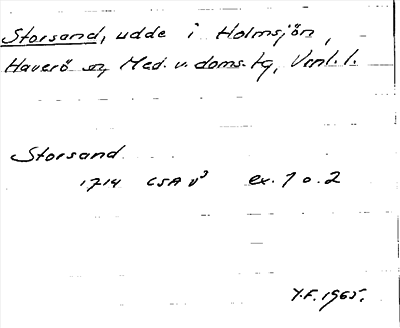 Storsand, udde i Holmsjön,
Haverö sn, Med. v. doms. tg, Vnl. l.
Storsand
1714 LSA V³ ex. 1 o. 2
Y.F. 1965.